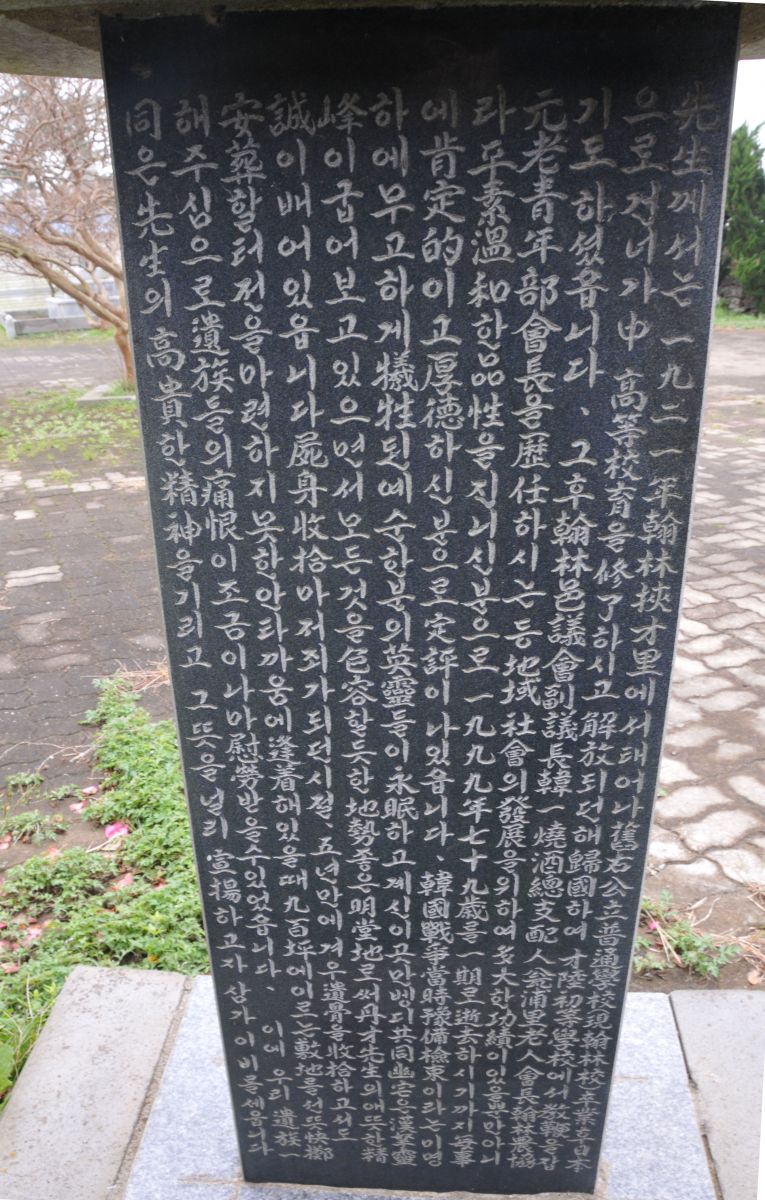 先生께서는 一九二一年翰林挾才里에서태어나舊右公立普通學校現翰林校卒業후日本
으로건너가中 高等校育을修了하시고 解放되던해歸國하여 才陸初等學校에서敎鞭을잡
기도 하셨읍니다、그후翰林邑議會副議長韓一燒酒總支配人翁浦里老人會長翰林農協
元老靑年部會長을歷任하시는등地域社會의發展을위하여多大한功績이있을뿐만아니
라平素溫和한品性을진니신분으로一九九九年七十九歲를一期로逝去하시기까지每事
에肯定的이고厚德하신분으로定評이나있읍니다、韓國戰爭當時豫備檢束이라는미명
하에무고하게犧牲된예순한분의英靈들이永眠하고계신이곳만벵디共同幽宅은漢拏靈
峰이굽어보고있으면서모든것을包容할듯한地勢좋은明堂地로써丹才先生의애뜻한精
誠이배어있읍니다屍身收拾마저죄가되던시절、五년만에겨우遺骨을收拾하고서도
安葬할터전을마련하지못한안타까움에逢着해있을때九百坪에이르는敷地를선뜻快擲
해주심으로遺族들의痛恨이조금이나마慰勞받을수있었읍니다、이에 우리 遺族一
同은先生의 高貴한精神을기리고 그뜻을널리 宣揚하고자삼가이비를세웁니다